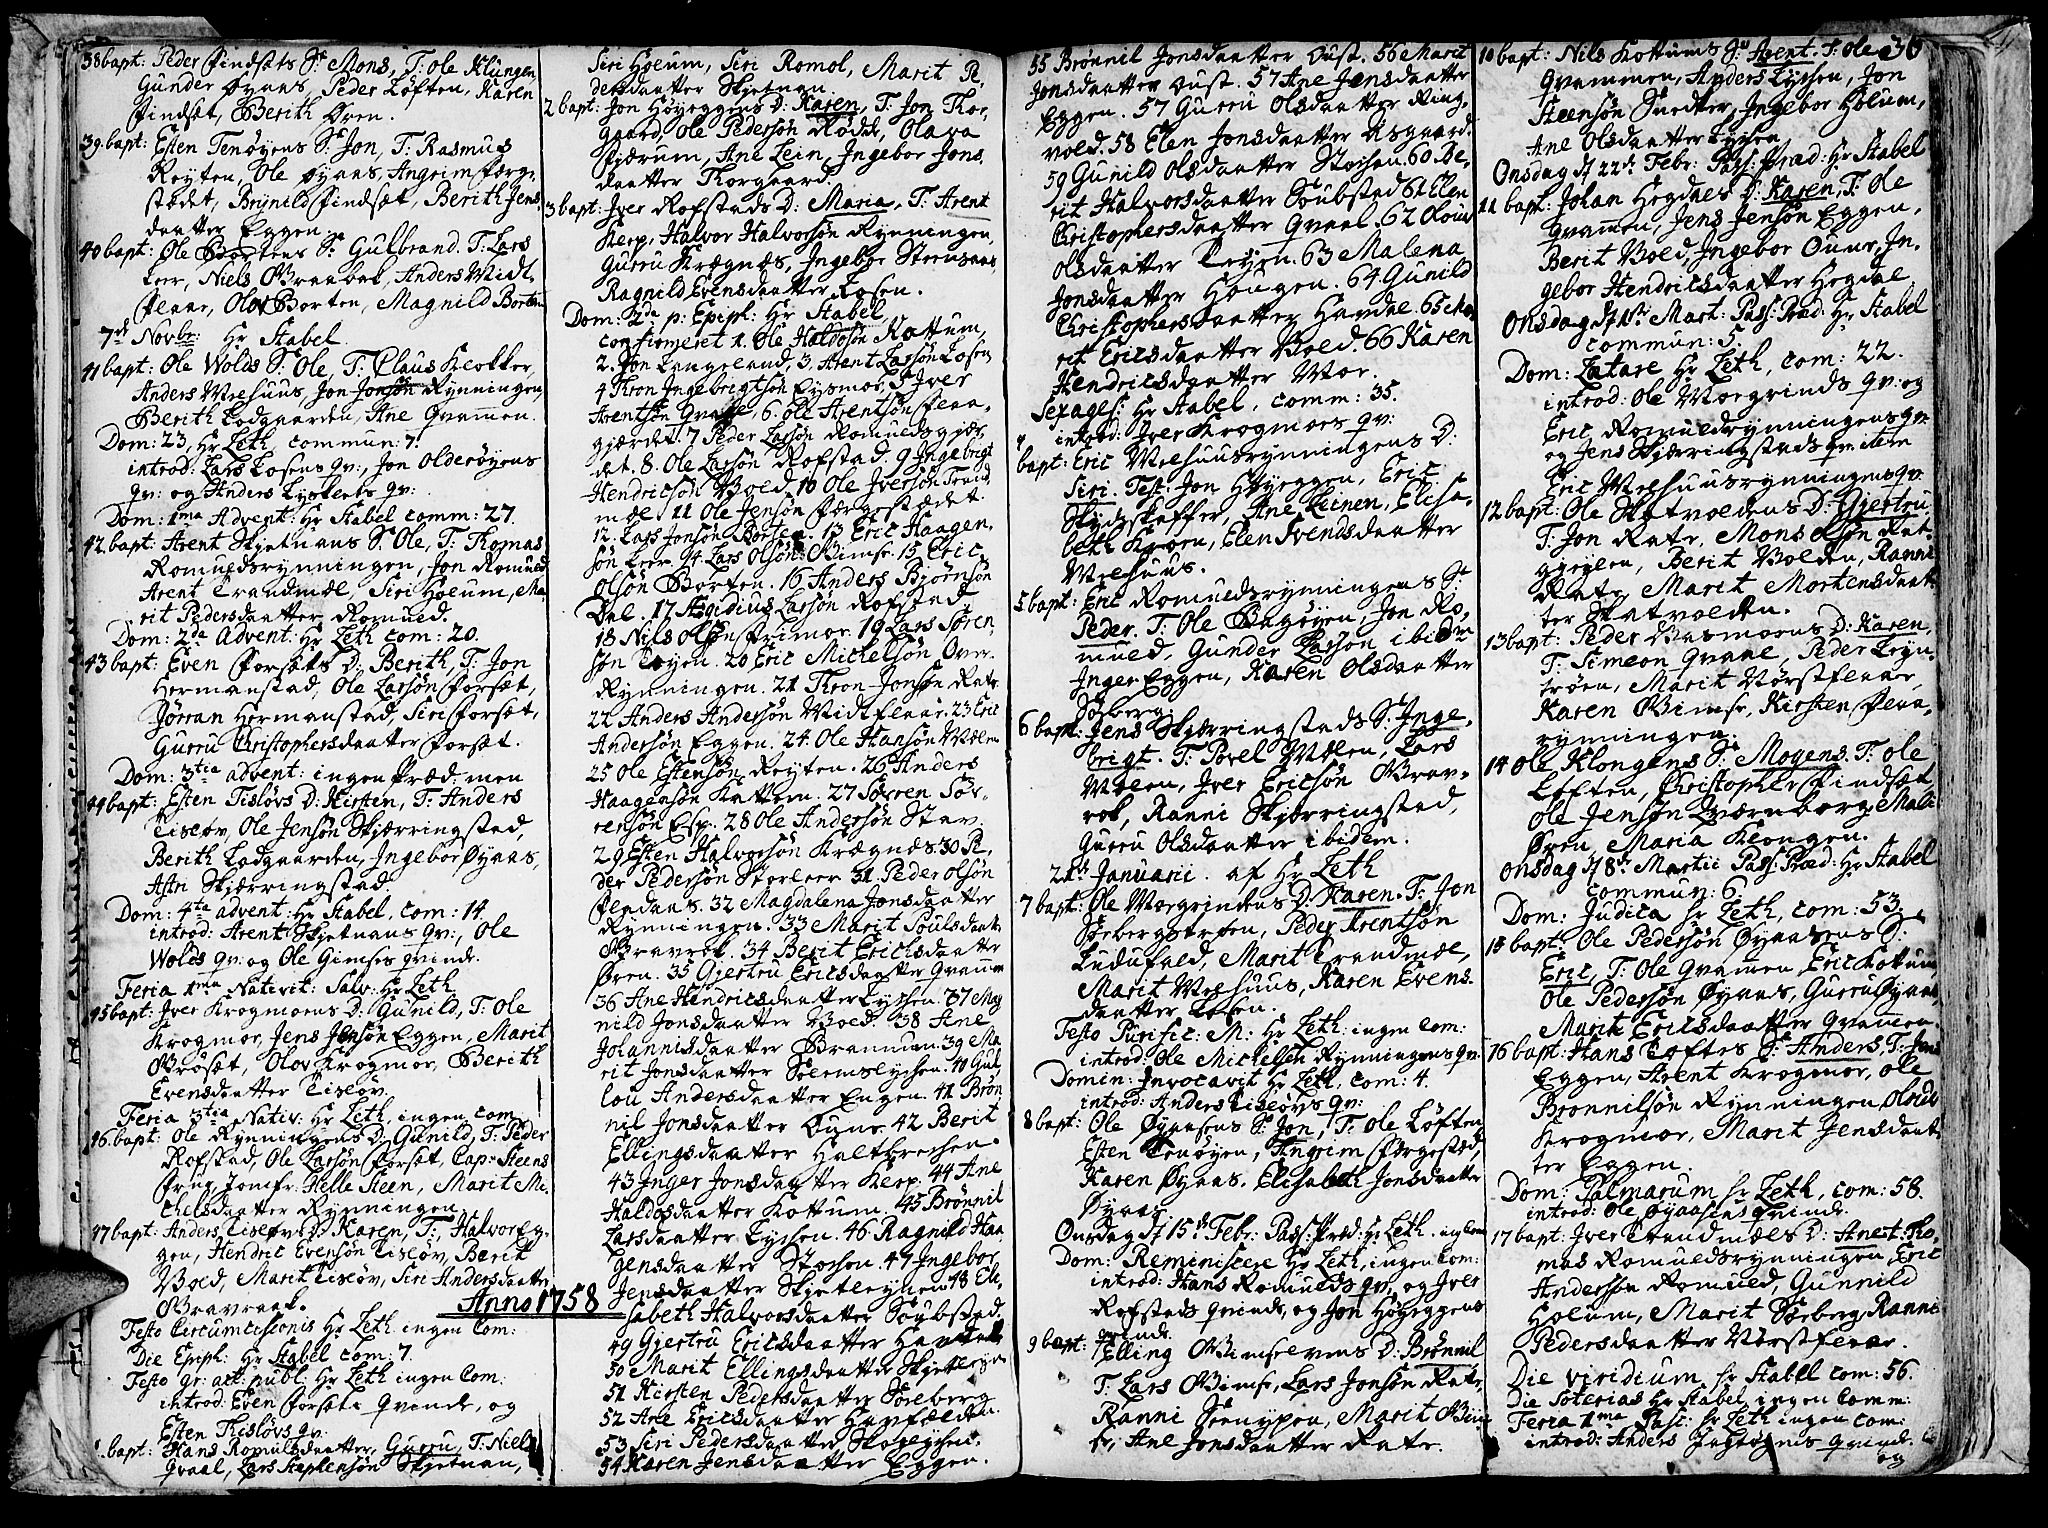 38 bapt: Peder Findsæts S: Mons, T: Ole Klungen,
Gunder Øyaas, Peder Løften, Karen
Findsæt, Berith Øren.
39 bapt: Esten Tenøyens S: Jon, T: Rasmus
Røyten, Ole Øyaas, Angrim Færge-
stædet, Brynild Findsæt, Berith Jens
daatter Eggen.
40 bapt: Ole Bortens S: Gulbrand. T: Lars
Leer, Niels Braabæk, Anders Midt
flaar, Olof Borten, Magnild Borten
7de Novbr: Hr Stabel.
41 bapt: Ole Wolds S: Ole, T: Claus Klokker,
Anders Melhuus, Jon Jonsøn Rynningen,
Berith Lodgaarden, Ane Qvammen.
Dom: 23, Hr Leth commun: 7.
introd: Lars Losens qv:, Jon Olderøyens
qv: og Anders Lyklets qv:
Dom: 1ma Advent: Hr Stabel comm: 27.
42 bapt: Arent Skjetnans S: Ole, T: Thomas
Romuldsrynningen, Jon Romuld
Arent Trandmæl, Siri Hoeum, Ma-
rit Pedersdaatter Romuld.
Dom: 2da Advent: Hr Leth com: 20.
43 bapt: Even Forsæts D: Berith, T: Jon
Hermanstad, Ole Larsøn Forsæt,
Jørran Hermanstad, Siri Forsæt,
Gurru Christophersdaatter Forsæt.
Dom: 3tia advent: ingen Præd: men
44 bapt: Esten Tisløvs D: Kirsten, T: Anders
Tisløv, Ole Jensøn Skjærringstad,
Berith Lodgaarden, Ingebor Øyaas,
Astri Skjærringstad.
Dom: 4ta advent: Hr Stabel, com: 14.
introd: Arent Skjetnans qv:, Ole
Wolds qv: og Ole Gimses qvinde.
Feria 1ma Nativit: Salv: Hr Leth
45 bapt: Iver Krogmoens D: Gunild, T: Ole
Krogmoe, Jens Jensøn Eggen, Marit
Brøsæt, Olov Krogmoe, Berith
Evensdaatter Tisløv.
Feria 3tia Nativ: Hr Leth, ingen com
46 bapt: Ole Rynningens D: Gunild, T: Peder
Rofstad, Ole Larsøn Forsæt, Cap: Steens
Frue, Jomfr: Helle Steen, Marit Mi-
chelsdaatter Rynningen.
47 bapt: Anders Tisløvs D: Karen, T: Halvor Eg-
gen, Hendric Evensøn Tisløv, Berit
Boed, Marit Tisløv, Siri Andersdaatter
Bravraak.
Anno 1758
Festo Circumcisionis Hr Leth ingen Com:
Die Epiph: Hr Stabel com: 7.
Festo gr: act: publ: Hr Leth ingen Com:
introd: Even Forsæts Qvinde, og
Esten Thisløvs qv:
1 bapt: Hans Romulsdaatter, Gurru, T: Niels
Qvaal, Lars Staplensøn Skjetnan,
Siri Hoeum, Siri Romol, Marit Pe-
dersdaatter Skjetnan.
2 bapt: Jon Høyeggens D: Karen, T: Jon Thor-
gaard, Ole Pedersøn Rødde, Olava
Fjærum, Ane Lein, Ingebor Jons
daatter Thorgaard.
3 bapt: Iver Rofstads D: Maria, T: Arent
Kerp, Halvor Halvorsøn Rynningen,
Gurru Krægnæs, Ingebor Steensaas
Ragnild Evensdaatter Losen.
Dom: 2da p: Epiph: Hr Stabel,
confirmeret 1. Ole Haldosøn Kattum,
2. Jon Langeland, 3. Arent Larsøn Losen
4 Thron Ingebrigtsøn Lysmoe, 5 Iver
Arentsøn Qvaale, 6. Ole Arentsøn Flaa-
gjærdet. 7 Peder Larsøn Romuldsgjær
det. 8. Ole Larsøn Rofstad. 9 Ingebrigt
Hendricsøn Boed. 10 Ole Iversøn Trand
mæl. 11 Ole Jensøn Færgestædet.
12. Lars Jonsøn Borten. 13 Eric Haagen-
søn Leer. 14. Lars Olsøn Gimse. 15 Eric
Olsøn Borten. 16 Anders Bjørnsøn
Dal. 17 Ægidius Larsøn Rofstad.
18 Nils Olsøn Frimoe. 19 Lars Søren-
søn Løyen. 20 Eric Michelsøn Over
Rynningen. 21 Thron Jonsøn Rate.
22 Anders Andersøn Midtflaar. 23 Eric
Andersøn Eggen. 24. Ole Hansøn Mælen
25 Ole Estensøn Røyten. 26 Anders
Haagensøn Kattem. 27 Sørren Sør-
rensøn Esp. 28 Ole Andersøn Stav.
29 Esten Halvorsøn Krægnæs. 30 Pe-
der Pedersøn Storleer. 31. Peder Olsøn
Flaaaas. 32 Magdalena Jonsdaatter
Rynningen. 33 Marit Poulsdaatter
Bravrok. 34 Berit Ericksdaatter
Øren. 35 Gjertru Ericsdaatter Qvaum
36 Ane Hendricsdaatter Lychen. 37 Mag
nild Jonsdaatter Boed. 38 Ane
Johannisdaatter Brannum. 39 Ma
rit Jonsdaatter Soemslychen. 40 Gul-
lou Andersdaatter Engen. 41 Brøn
nil Jonsdaatter Øyne. 42 Berit
Ellingsdaatter Haltbrechen.
43 Inger Jonsdaatter Kerp. 44 Ane
Haldosdaatter Kottum. 45 Brønnil
Larsdaatter Lychen. 46 Ragnild Haa
gensdaatter Stochen. 47 Ingebor
Jensdaatter Skjetleynen. 48 Eli-
sabeth Halvorsdaatter Soubstad.
49 Gjertru Ericsdaatter Handal
50 Marit Ellingsdaatter Skjetleyn
51 Kirsten Pedersdaatter Søeberg
52 Ane Ericsdaatter Hanfælden.
53 Siri Pedersdaatter Skoglychen.
54 Karen Jensdaatter Eggen.
55 Brønnil Jonsdaatter Øust. 56 Marit
Jonsdaatter Oust. 57 Ane Jensdaatter
Eggen. 57 Gurru Olsdaatter Ring-
vold. 58 Elen Jonsdaatter Asgaard.
59 Gunild Olsdaatter Stochen. 60 Be-
rit Halvorsdaatter Soubstad 61 Elen
Christophersdaatter Qvaal. 62 Louis
Olsdaatter Løyen. 63 Malena
Jonsdaatter Hougen. 64 Gunild
Christophersdaatter Handal. 65 Ma
rit Ericsdaatter Boed. 66 Karen
Hendricsdaatter Moe.
Sexages: Hr Stabel, comm: 35.
introd: Iver Krogmoes qv:
4 bapt: Eric Melhuusrynningens D:
Siri. Test: Jon Høyeggen, Eric
Skydskaffer, Ane Leinen, Elisa-
beth Kroen, Elen Svendsdaatter
Melhuus.
5 bapt: Eric Romuldsrynningens S:
Peder. T: Ole Bagøyen, Jon Ro-
muld, Gunder Larsøn ibidem
Inger Eggen, Karen Olsdaatter
Søeberg.
6 bapt: Jens Skjærringstads S: Inge-
brigt. T: Povel Mælen, Lars
Mælen, Iver Ericsøn Brav-
rok, Ranni Skjærringstad,
Gurru Olsdaatter ibidem.
21de Januarii. af Hr Leth
7 bapt: Ole Morgrindens D: Karen. T: Jon
Sørbergstrøen, Peder Arentsøn
Ludufald, Marit Trandmæl,
Marit Melhuus, Karen Evens-
daatter Losen.
Festo Purific: M: Hr Leth: ingen Com:
introd: Ole Michelsen Rynningens qv:
Domin: Invocavit Hr Leth, com: 4.
introd: Anders Tisløvs qv:
8 bapt: Ole Øyaasens S: Jon, T: Ole Løften,
Esten Tenøyen, Angrim Færgestæd,
Karen Øyaas, Elisabeth Jonsdaatter
Øyaas.
Onsdag d 15de Febr: Pass: Præd: Hr Leth. ing Com
Dom: Reminiscere Hr Leth, ingen com:
introd: Hans Romulds qv: og Iver
Rofstads qvinde, og Jon Høyeggens
qvinde.
9 bapt: Elling Gimseleyens D: Brønnil
T: Lars Gimse, Lars Jonsøn Rate,
Ranni Loenypen, Marit Gim
se, Ane Jonsdaatter Rate.
36
10 bapt: Nils Kottums S: Arent. T: Ole
Qvammen, Anders Lychen, Jon
Steensøn Snedker, Ingebor Hølum,
Ane Olsdaatter Lychen
Onsdag d 22de Febr: Pass: Præd: Hr Stabel
11 bapt: Johan Hogdals D: Karen, T: Ole
Qvammen, Jens Jensøn Eggen,
Berit Boed, Ingebor Øune, In-
gebor Hendricsdaatter Hogdal
Onsdag d 1ste Mart: Pass: Præd: Hr Stabel
commun: 5.
Dom: Lætare Hr Leth, com: 22.
introd: Ole Morgrinds qv: og
Eric Romuldrynningens qv:
og Jens Skjærringstads qv: item
Eric Melhuusrynningens qv:
12 bapt: Ole Skatvoldens D: Gjertru.
T: Jon Rate, Mons Olsøn Rat-
gyeylen, Berit Bolden, Ranni
Rate, Marit Mortensdaat-
ter Skatvolden.
13 bapt: Peder Aasmoens D: Karen,
T: Simeon Qvaal, Peder Leyn-
trøen, Marit Nørstflaar,
Karen Gimse, Kirsten Flaa-
rynningen.
14 Ole Klongens S: Mogens. T: Ole
Løften, Christopher Findsæt
Ole Jensøn Qværnborg, Mali
Øren, Maria Klongen.
Onsdag d 8de Martii Pass: Præd: Hr Stabel
commun: 6.
Dom: Judica Hr Leth, com: 53.
15 bapt: Ole Pedersøn Øyaasens S:
Eric, T: Ole Qvamen, Eric Kottum,
Ole Pedersøn Øyaas, Gurru Øyaas,
Marit Ericsdaatter Qvammen.
16 bapt: Hans Løftes S: Anders, T: Jens
Eggen, Arent Krogmoe, Ole
Bronnilsøn Rynningen, Olouv
Krogmoe, Marit Jensdaat
ter Eggen.
Dom: Palmarum Hr Leth, com: 58.
introd: Ole Øyaasens qvinde.
17 bapt: Iver Trandmæls D: Ane. T: Tho-
mas Romuldsrynningen, Eric
Andersøn Romuld, Gunnild
Hølum, Marit Sørberg, Ranni
Pedersdaatter Nørstflaar.
Die viridium Hr Stabel com: 56.
Die Soterias Hr Stabel, ingen Comm:
Feria 1ma Pasc: Hr Leth ingen com:
introd: Anders Ingstøens qvinde.
og